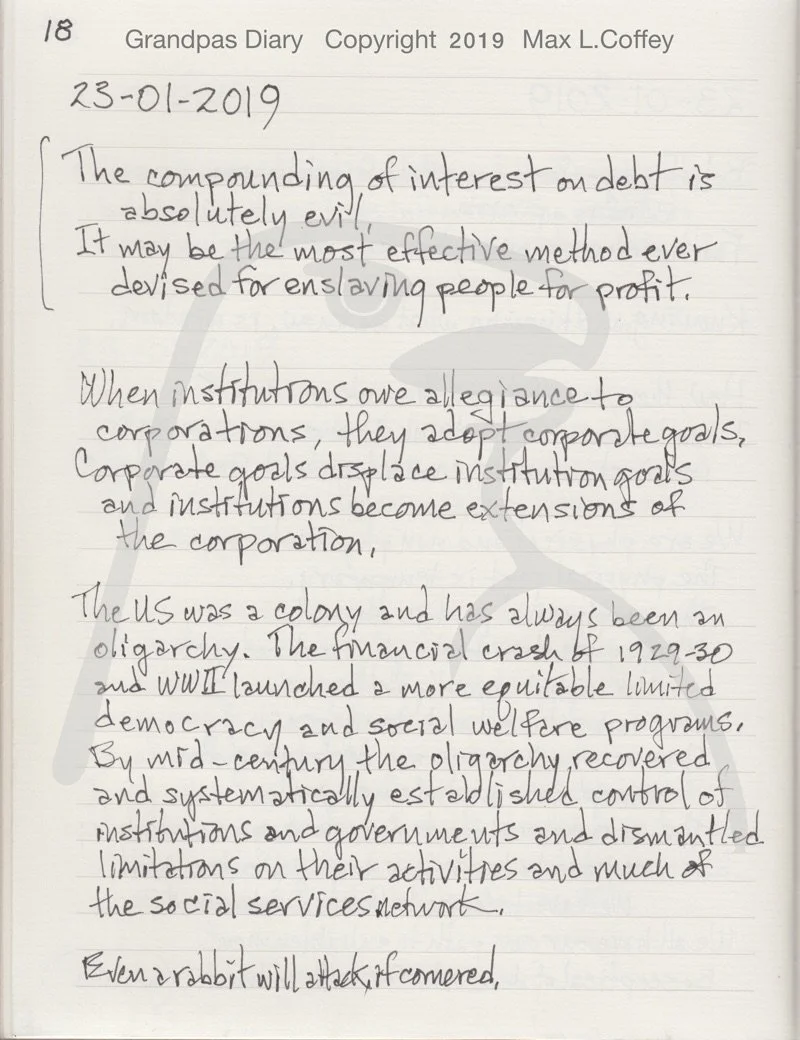 18
Grandpas Diary Copyright 2019 Max L.Coffey
23-01-2019
The compounding of interest on debt is
absolutely evil.
It may be the most effective method ever
devised for enslaving people for profit.
When institutions owe allegiance to
corporations, they adopt corporate goals.
Corporate goals displace institution goals
and institutions become extensions of
the corporation.
The US was a colony and has always been an
oligarchy. The financial crash of 1929-30
and WWII launched a more equitable limited
democracy and social welfare programs.
By mid-century the oligarchy recovered
and systematically established control of
institutions and governments and dismantled
limitations on their activities and much of
the social services network.
Even a rabbit will attack, if cornered.